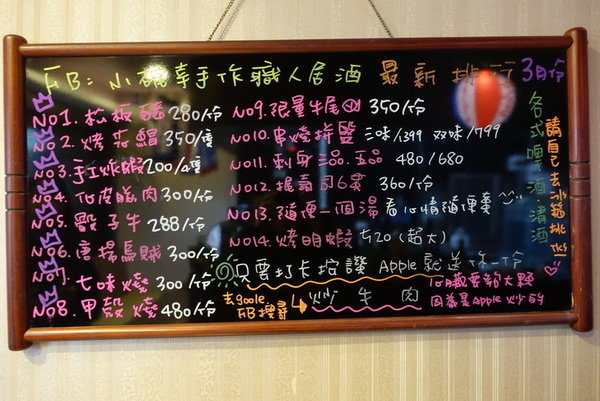 FB: 小確幸手作職人居酒 最新排行 3月份
NO1. 松板豬 280/份
NO2. 烤花鯧 350/隻
NO3. 手工炸蝦 200/4隻
NO4. 化皮脆肉 300/份
NO5. 骰子牛 288/份
NO6. 唐揚烏賊 300/份
NO7. 七味燒 300/份
NO8. 甲殼燒 480/份
NO9. 限量牛尾 350/份
NO10. 串燒拼盤 三味/399 双味/799
NO11. 刺身三品.五品 480/680
NO12. 握壽司6貫 360/份
NO13. 隨便一個湯 看心情隨便賣
NO14. 烤明蝦 420 (超大)
只要打卡按讚 Apple 就送你一份
去google
FB搜尋
炒牛肉
心臟要夠大顆
因為是Apple炒的
各式啤酒.清酒
請自己去冰箱挑